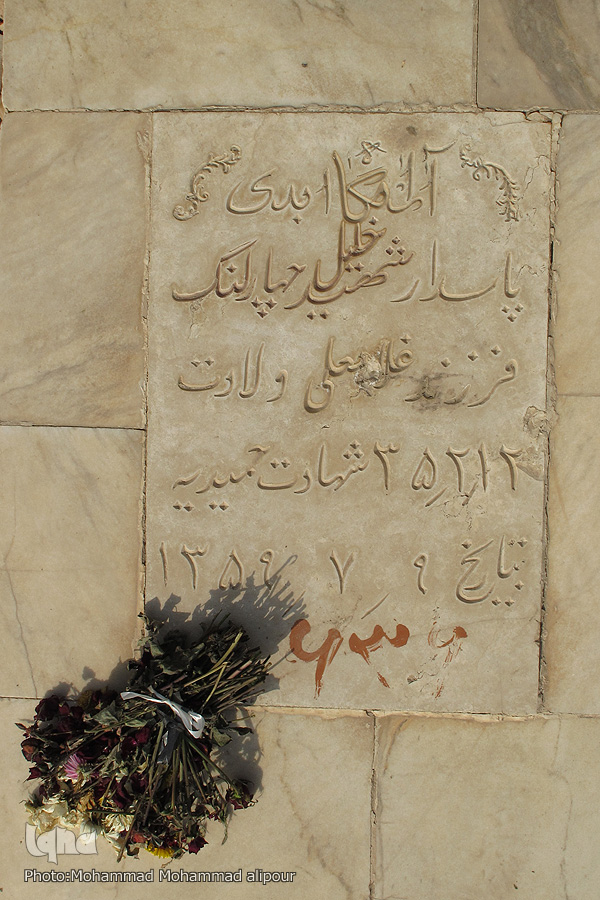 آرامگاه ابدی
پاسدار شهید خلیل چهارلنگ
فرزند غلامعلی ولادت
۳۵ شهادت حمیدیه
تاریخ ۹ ۷ ۱۳۵۹
۶۳۶
iqna
Photo:Mohammad Mohammad alipour